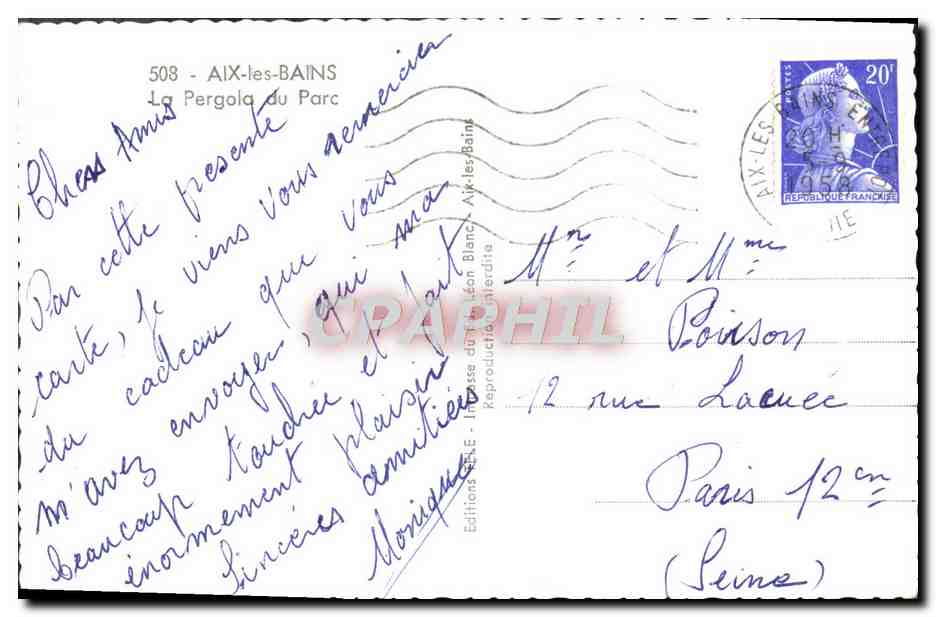 508 - AIX-les-BAINS
La Pergola du Parc
Chers Amis
Par cette présente
carte, je viens vous remercier
du cadeau que vous
m'avez envoyer, qui ma
beaucoup touchée et fait
énormement plaisir
Sincères amitiées
Monique
Editions - Impasse du Léon Blanc - Aix-les-Bains
Reproduction interdite
CPAPHIL
POSTES
20F
REPUBLIQUE FRANCAISE
AIX-LES-BAINS
20 H
5-9
1958
Mr et Mme
Poinson
12 rue Lacuée
Paris 12em
(Seine)